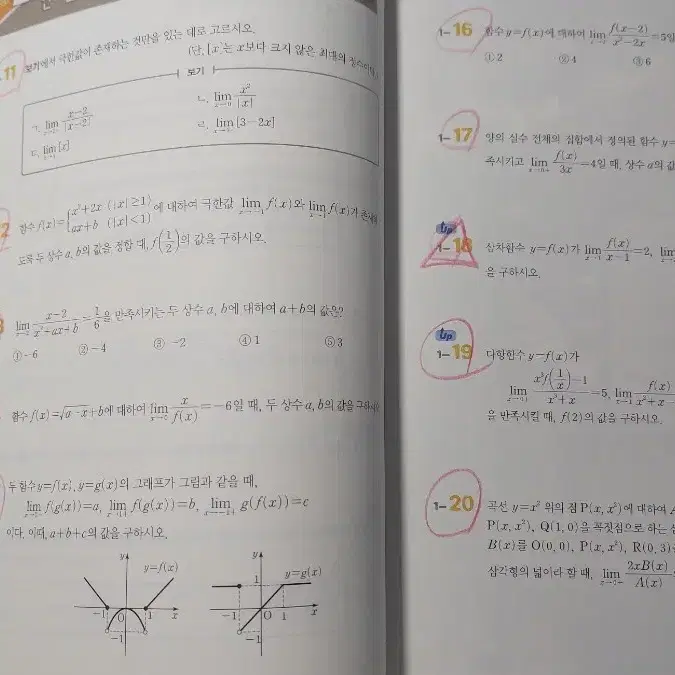 11 보기에서 극한값이 존재하는 것만을 있는 대로 고르시오.
(단, [x]는 x보다 크지 않은 최대의 정수이다.)
보기
ㄱ. lim x-2/|x-2|
ㄴ. lim x→0 x²/|x|
ㄷ. lim [x]
ㄹ. lim [3-2x]
함수 f(x)={x²+2x (|x|≥1) ax+b (|x|<1)에 대하여 극한값 lim x→-1 f(x)와 lim x→1 f(x)가
도록 두 상수 a, b의 값을 정할 때, f(1/2)의 값을 구하시오.
lim x→2 x-2/x²+ax+b=1/6을 만족시키는 두 상수 a, b에 대하여 a+b의 값은?
①-6 ②-4 ③ -2 ④1 ⑤3
함수 f(x)=√a-x+b에 대하여 lim x→0 x/f(x)=-6일 때, 두 상수 a, b의 값을 구하시오
두 함수 y=f(x), y=g(x)의 그래프가 그림과 같을 때,
lim f(g(x))=a, lim f(g(x))=b, lim g(f(x))=c
이다. 이때, a+b+c의 값을 구하시오.
y y=f(x)
-1 O 1 x
-1
y y=g(x)
1
-1 O 1 x
-1
1-16 함수 y=f(x)에 대하여 lim f(x-2)/x²-2x=5일
①2 ②4 ③6
1-17 양의 실수 전체의 집합에서 정의된 함수 y=
족시키고 lim x→0+ f(x)/3x=4일 때, 상수 a의 값
tip
1-18 삼차함수 y=f(x)가 lim x→1 f(x)/x-1=2, lim
을 구하시오.
tip
1-19 다항함수 y=f(x)가
lim x→0+ x³f(1/x)-1/x³+x=5, lim x→1 f(x)/x²+x-
을 만족시킬 때, f(2)의 값을 구하시오.
1-20 곡선 y=x² 위의 점 P(x, x²)에 대하여 A
P(x, x²), Q(1, 0)을 꼭짓점으로 하는 삼
B(x)를 O(0, 0), P(x, x²), R(0, 3)
삼각형의 넓이라 할 때, lim x→0+ 2xB(x)/A(x)